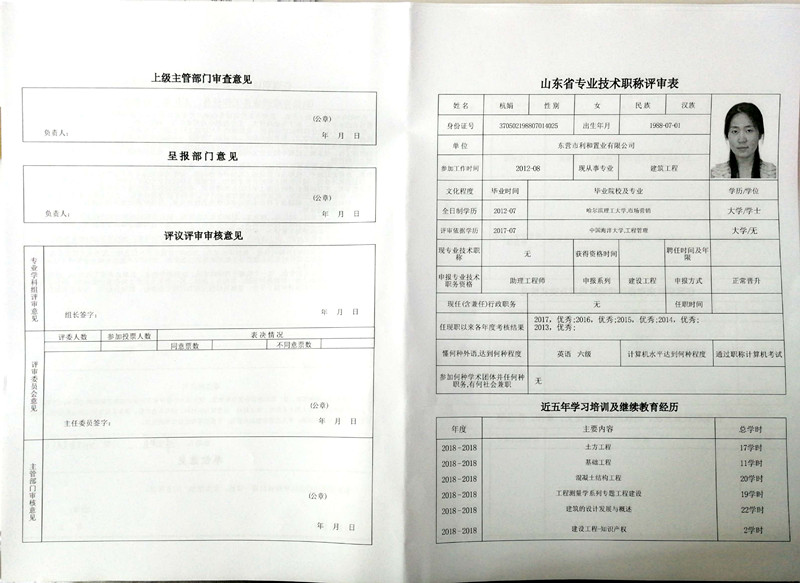 上级主管部门审查意见
(公章)
负责人：
年 月 日
呈报部门意见
(公章)
负责人：
年 月 日
评议评审审核意见
专业学科组评审意见
组长签字：
年 月 日
评委人数 参加投票人数 表决情况
同意票数 不同意票数
评审委员会意见
(公章)
主任委员签字：
年 月 日
主管部门审核意见
(公章)
年 月 日
山东省专业技术职称评审表
姓名 杭娟 性别 女 民族 汉族
身份证号 370502198807014025 出生年月 1988-07-01
单位 东营市利和置业有限公司
参加工作时间 2012-08 现从事专业 建筑工程
文化程度 毕业时间 毕业院校及专业 学历/学位
全日制学历 2012-07 哈尔滨理工大学,市场营销 大学/学士
评审依据学历 2017-07 中国海洋大学,工程管理 大学/无
现专业技术职称 无 获得资格时间 聘任时间及年限
申报专业技术职务资格 助理工程师 申报系列 建设工程 申报方式 正常晋升
现任(含兼任)行政职务 无 任职时间
任现职以来各年度考核结果 2017, 优秀;2016, 优秀;2015, 优秀;2014, 优秀;
2013, 优秀;
懂何种外语,达到何种程度 英语 六级 计算机水平达到何种程度 通过职称计算机考试
参加何种学术团体并任何种职务,有何社会兼职 无
近五年学习培训及继续教育经历
年度 主要内容 总学时
2018-2018 土方工程 17学时
2018-2018 基础工程 11学时
2018-2018 混凝土结构工程 20学时
2018-2018 工程测量学系列专题工程建设 19学时
2018-2018 建筑的设计发展与概述 22学时
2018-2018 建设工程-知识产权 2学时